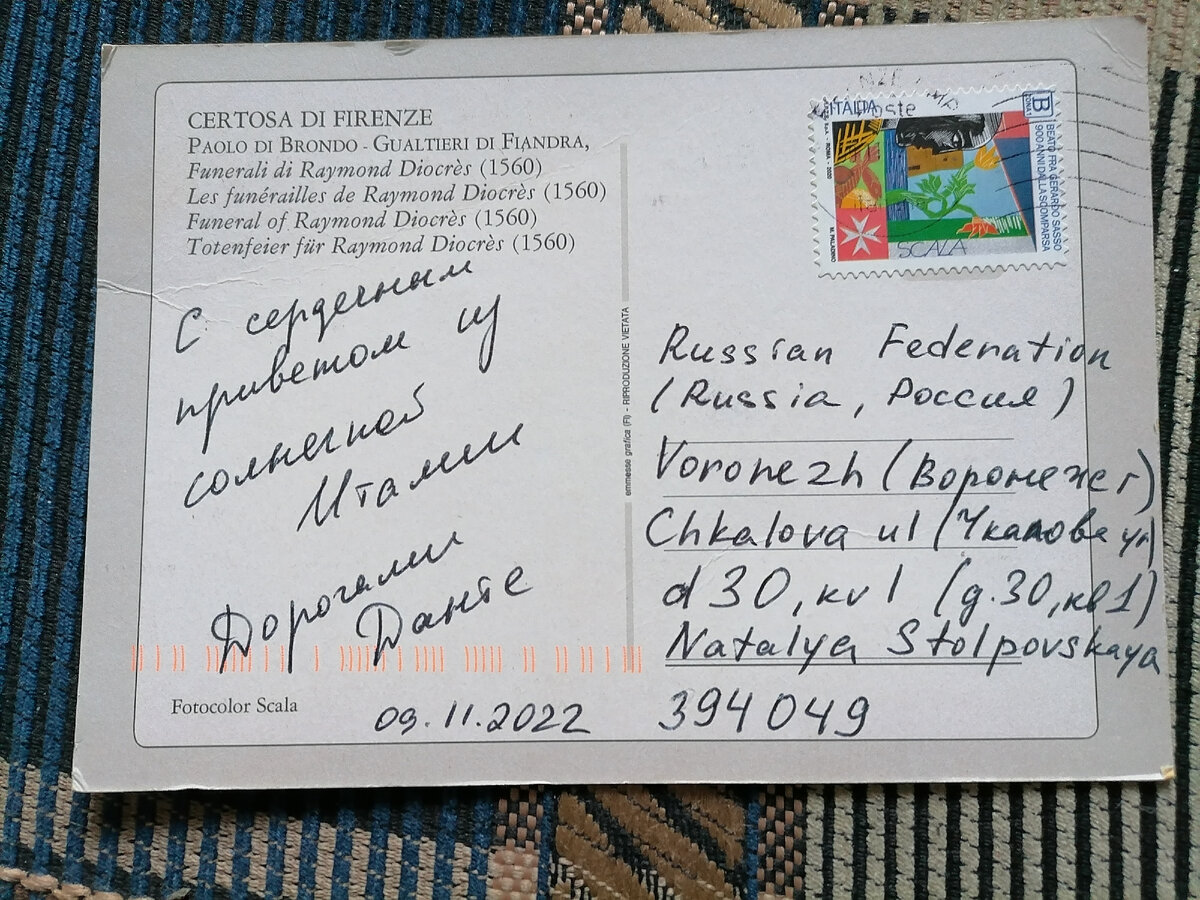 CERTOSA DI FIRENZE
PAOLO DI BRONDO - GUALTIERI DI FIANDRA,
Funerali di Raymond Diocrès (1560)
Les funérailles de Raymond Diocrès (1560)
Funeral of Raymond Diocrès (1560)
Totenfeier für Raymond Diocrès (1560)
С сердечным
приветом из
солнечной
Италии
Дорогами
Данте
Fotocolor Scala
09.11.2022
emmesse grafica (FI) - RIPRODUZIONE VIETATA
ITALIA
B
ZONA 1
BEATO FRA GERARDO SASSO
900 ANNI DALLA SCOMPARSA
ROMA - 2020
M. PALADINO
SCALA
Russian Federation
(Russia, Россия)
Voronezh (Воронеж г)
Chkalova ul (Чкалова ул)
d 30, kv 1 (д.30, кв 1)
Natalya Stolpovskaya
394049